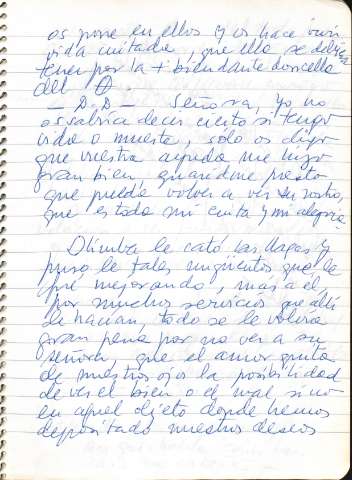 os pone en ellos y os hace vivir
vida cuitada, que ella se debría
tener por la + bien andante doncella
del
— D.D — Señora, yo no
os sabría decir cierto si tengo
vida o muerte, sólo os digo
que vuestra ayuda me hizo
gran bien, guaridme presto
que pueda volver a ver su rostro,
que es toda mi cuita y mi alegría.
Olimba le cató las llagas y
puso le tales ungüentos que le
fué mejorando, mas a él,
por muchos servicios que allí
le hacían, todo se le volvía
gran pena por no ver a su
señora, que el amor quita
de nuestros ojos la posibilidad
de ver el bien o el mal sino
en aquel objeto donde hemos
depositado nuestros deseos